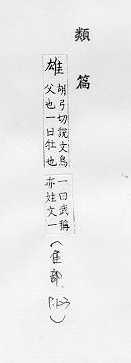 類篇
雄 胡弓切說文鳥
父也一曰牡也
一曰武稱
亦姓文一
(隹部 P.123)